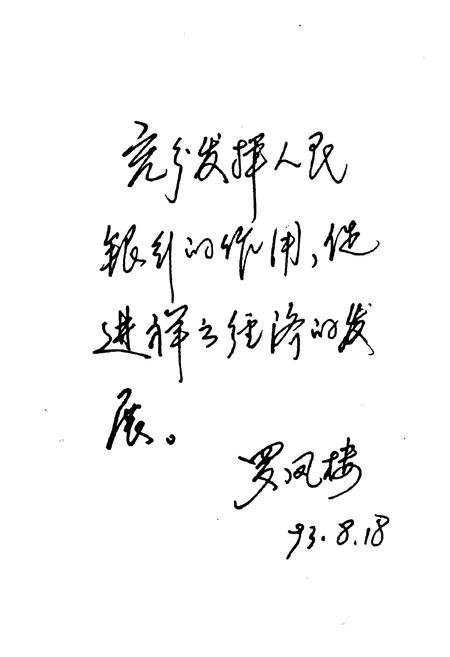 充分发挥人民
银行的作用,促
进祥云经济的发
展。
罗凤楼
93.8.18